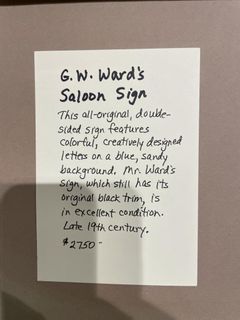 G. W. Ward's
Saloon Sign
This all-original, double-
sided sign features
colorful, creatively designed
letters on a blue, sandy
background. Mr. Ward's
sign, which still has its
original black trim, is
in excellent condition.
Late 19th century.
$2750-